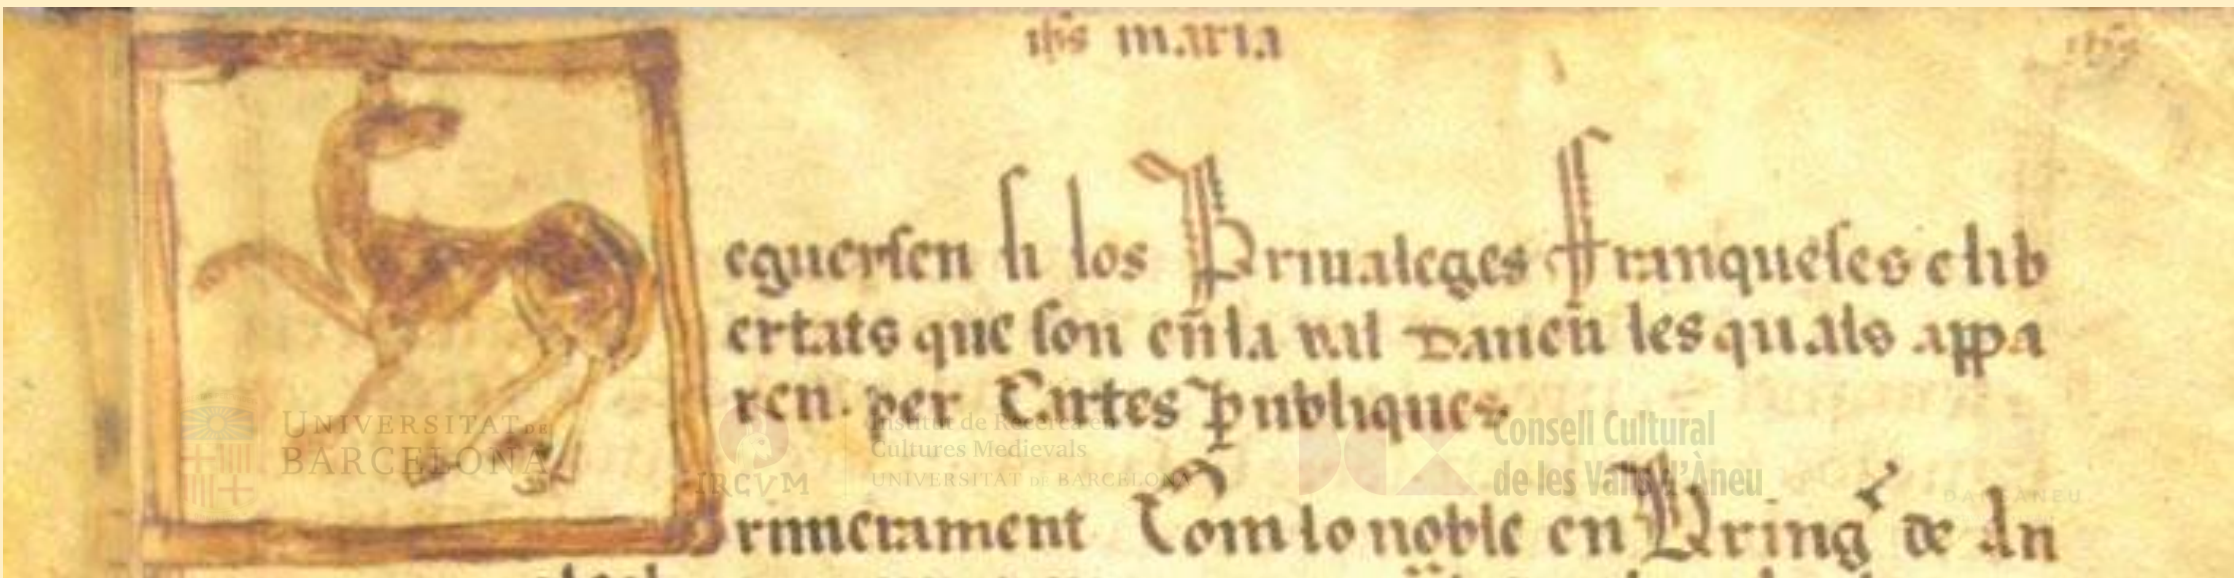 ihs maria
eguexsen si los Priualeges franqueses e lib
ertats que son en la uall daneu les quals appa
ren. per Cartes publiques
rimerament Com lo noble en Bring de An
UNIVERSITAT DE BARCELONA
IRCVM
Institut de Recerca en Cultures Medievals
UNIVERSITAT DE BARCELONA
Consell Cultural
de les Valls d'Àneu
DANSÀNEU